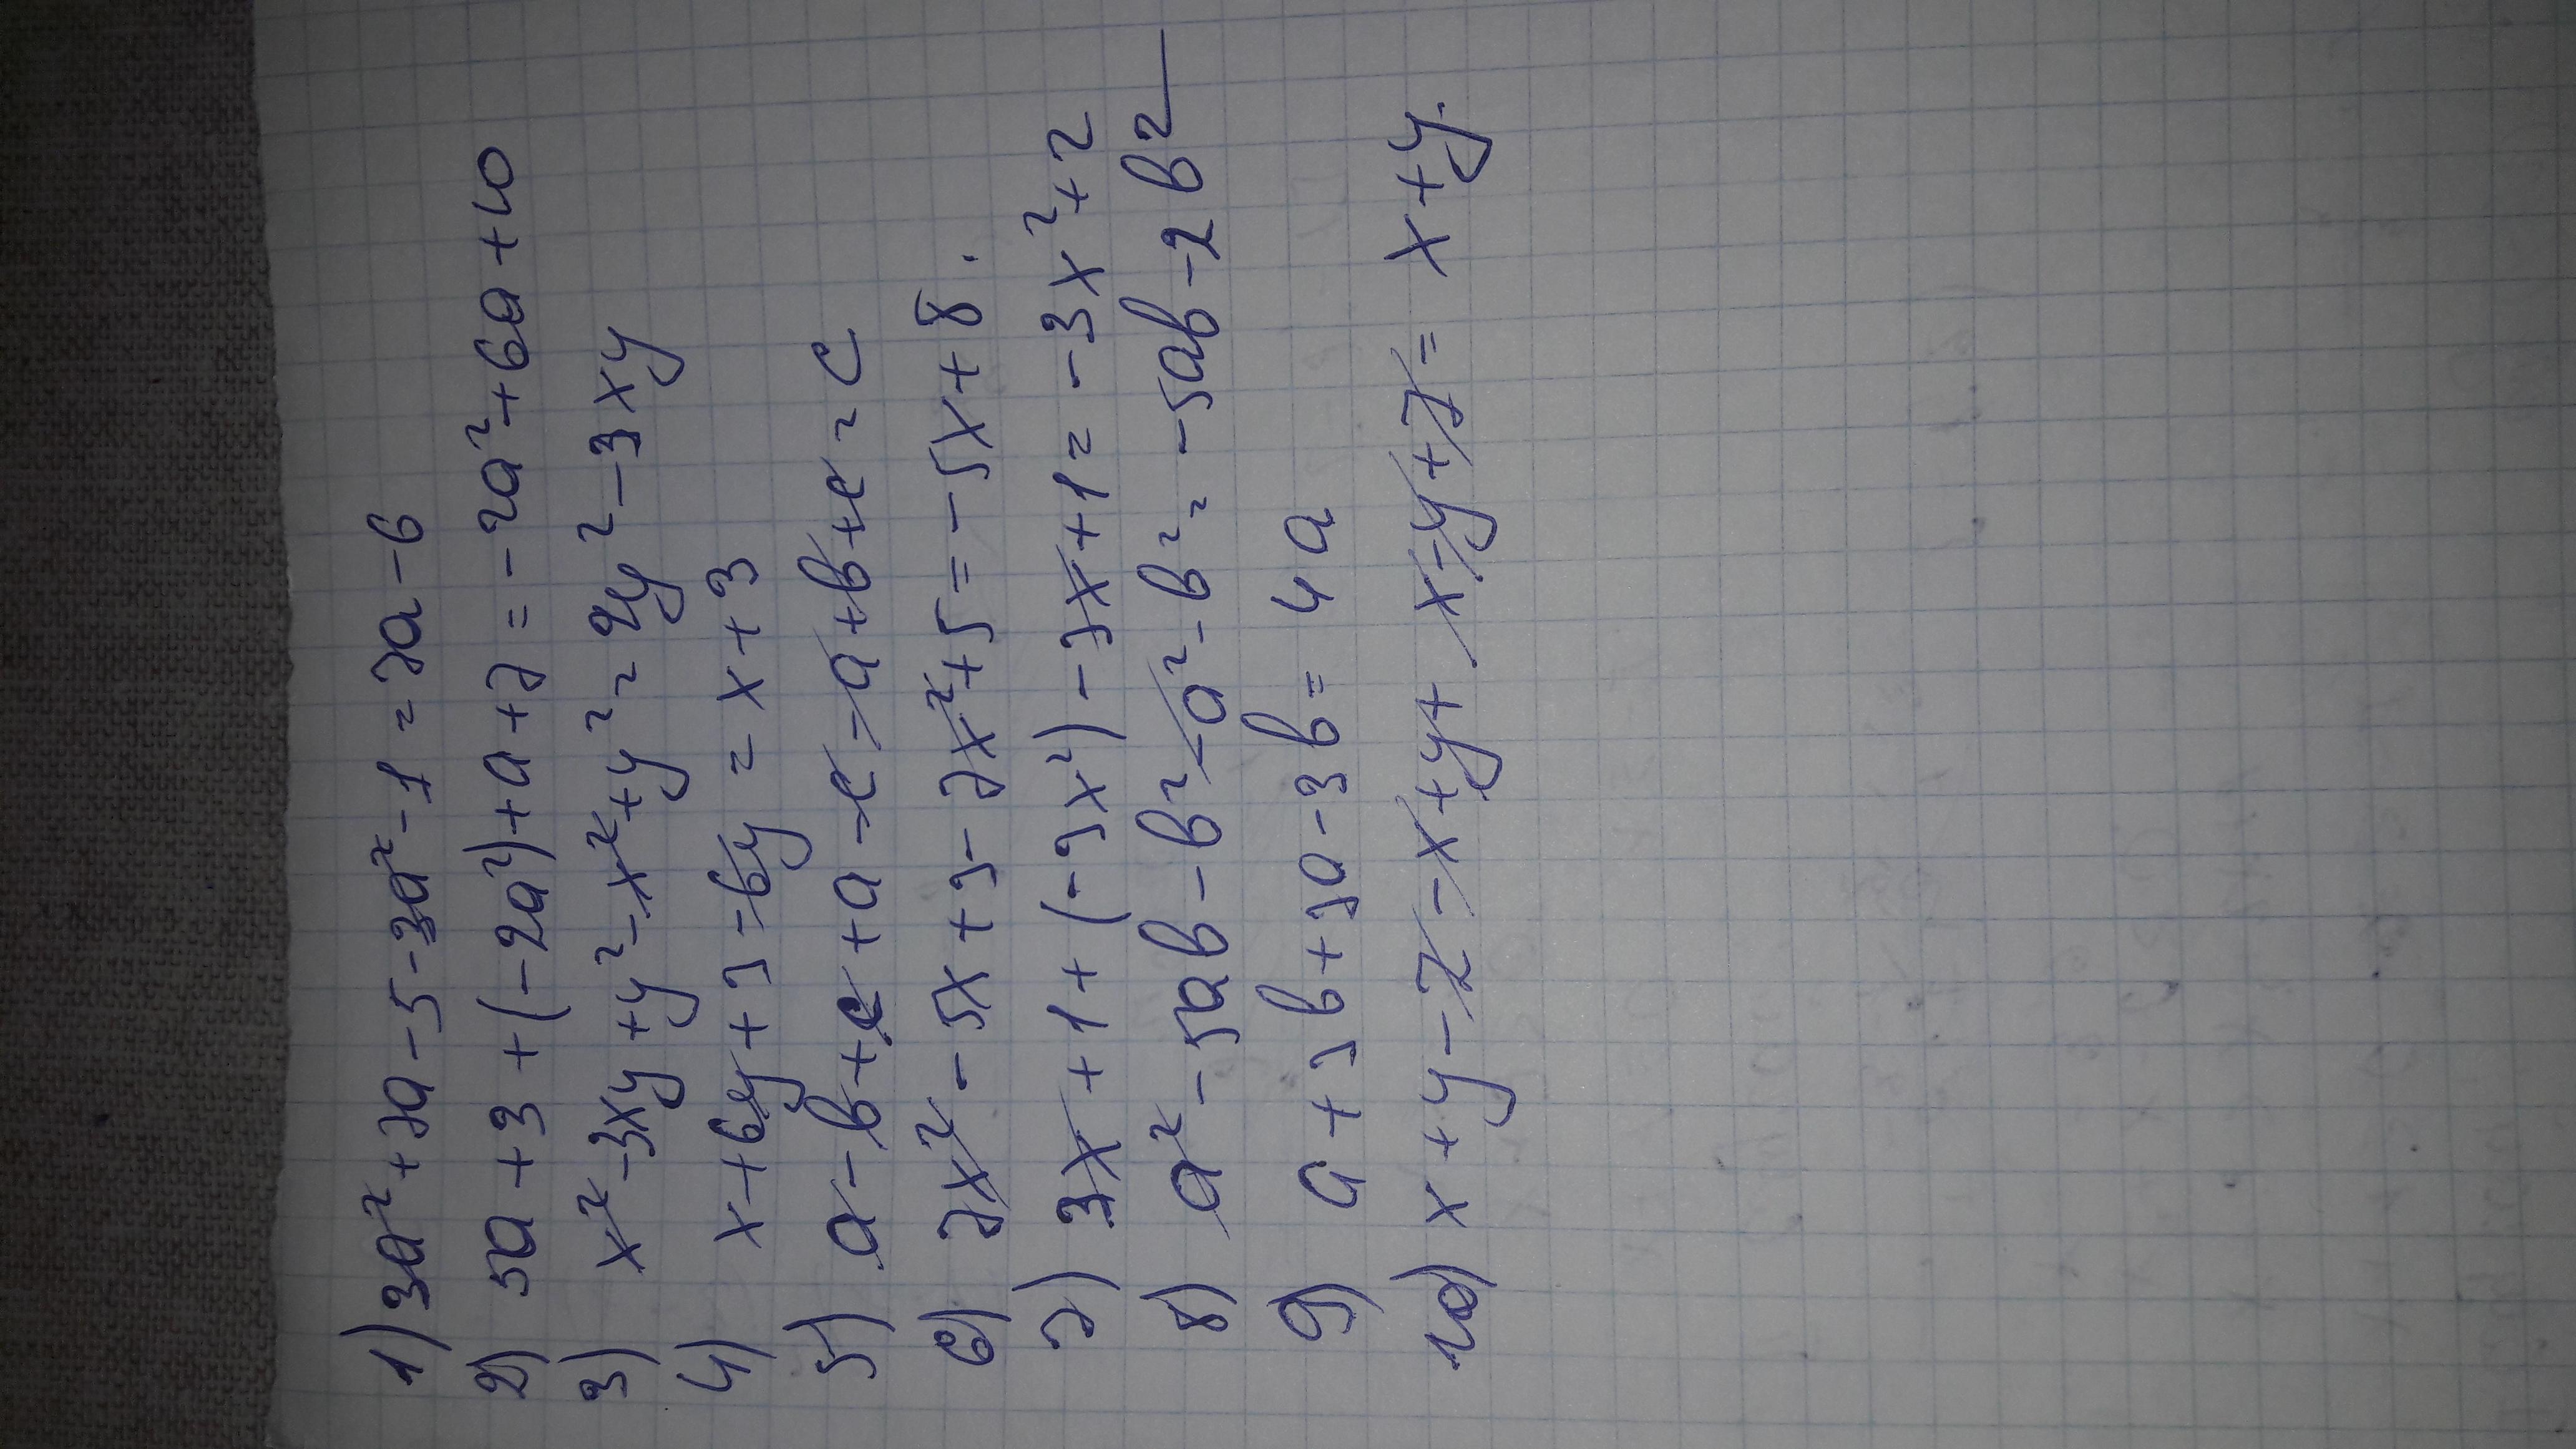 1) 3a² + 7a - 5 - 3a² - 1 = 7a - 6
2) 5a + 3 + (-2a²) + a + 7 = -2a² + 6a + 10
3) x² - 3xy + y² - x² + y² = 2y² - 3xy
4) x + 6y + 3 - 6y = x + 3
5) a - b + c + a - c - a + b + c = c
6) 7x² - 5x + 3 - 7x² + 5 = -5x + 8.
7) 3x + 1 + (-3x²) - 3x + 1 = -3x² + 2
8) a² - 5ab - b² - a² - b² = -5ab - 2b²
9) a + 3b + 3a - 3b = 4a
10) x + y - z - x + y + x - y + z = x + y.